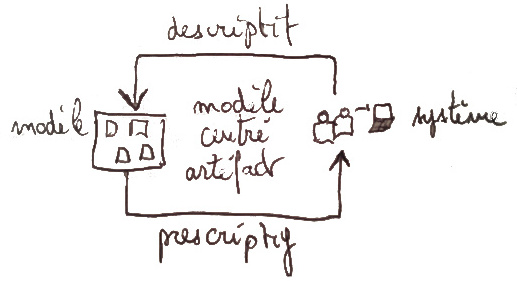 descriptif
modèle
modèle
centré
artifact
système
prescriptif